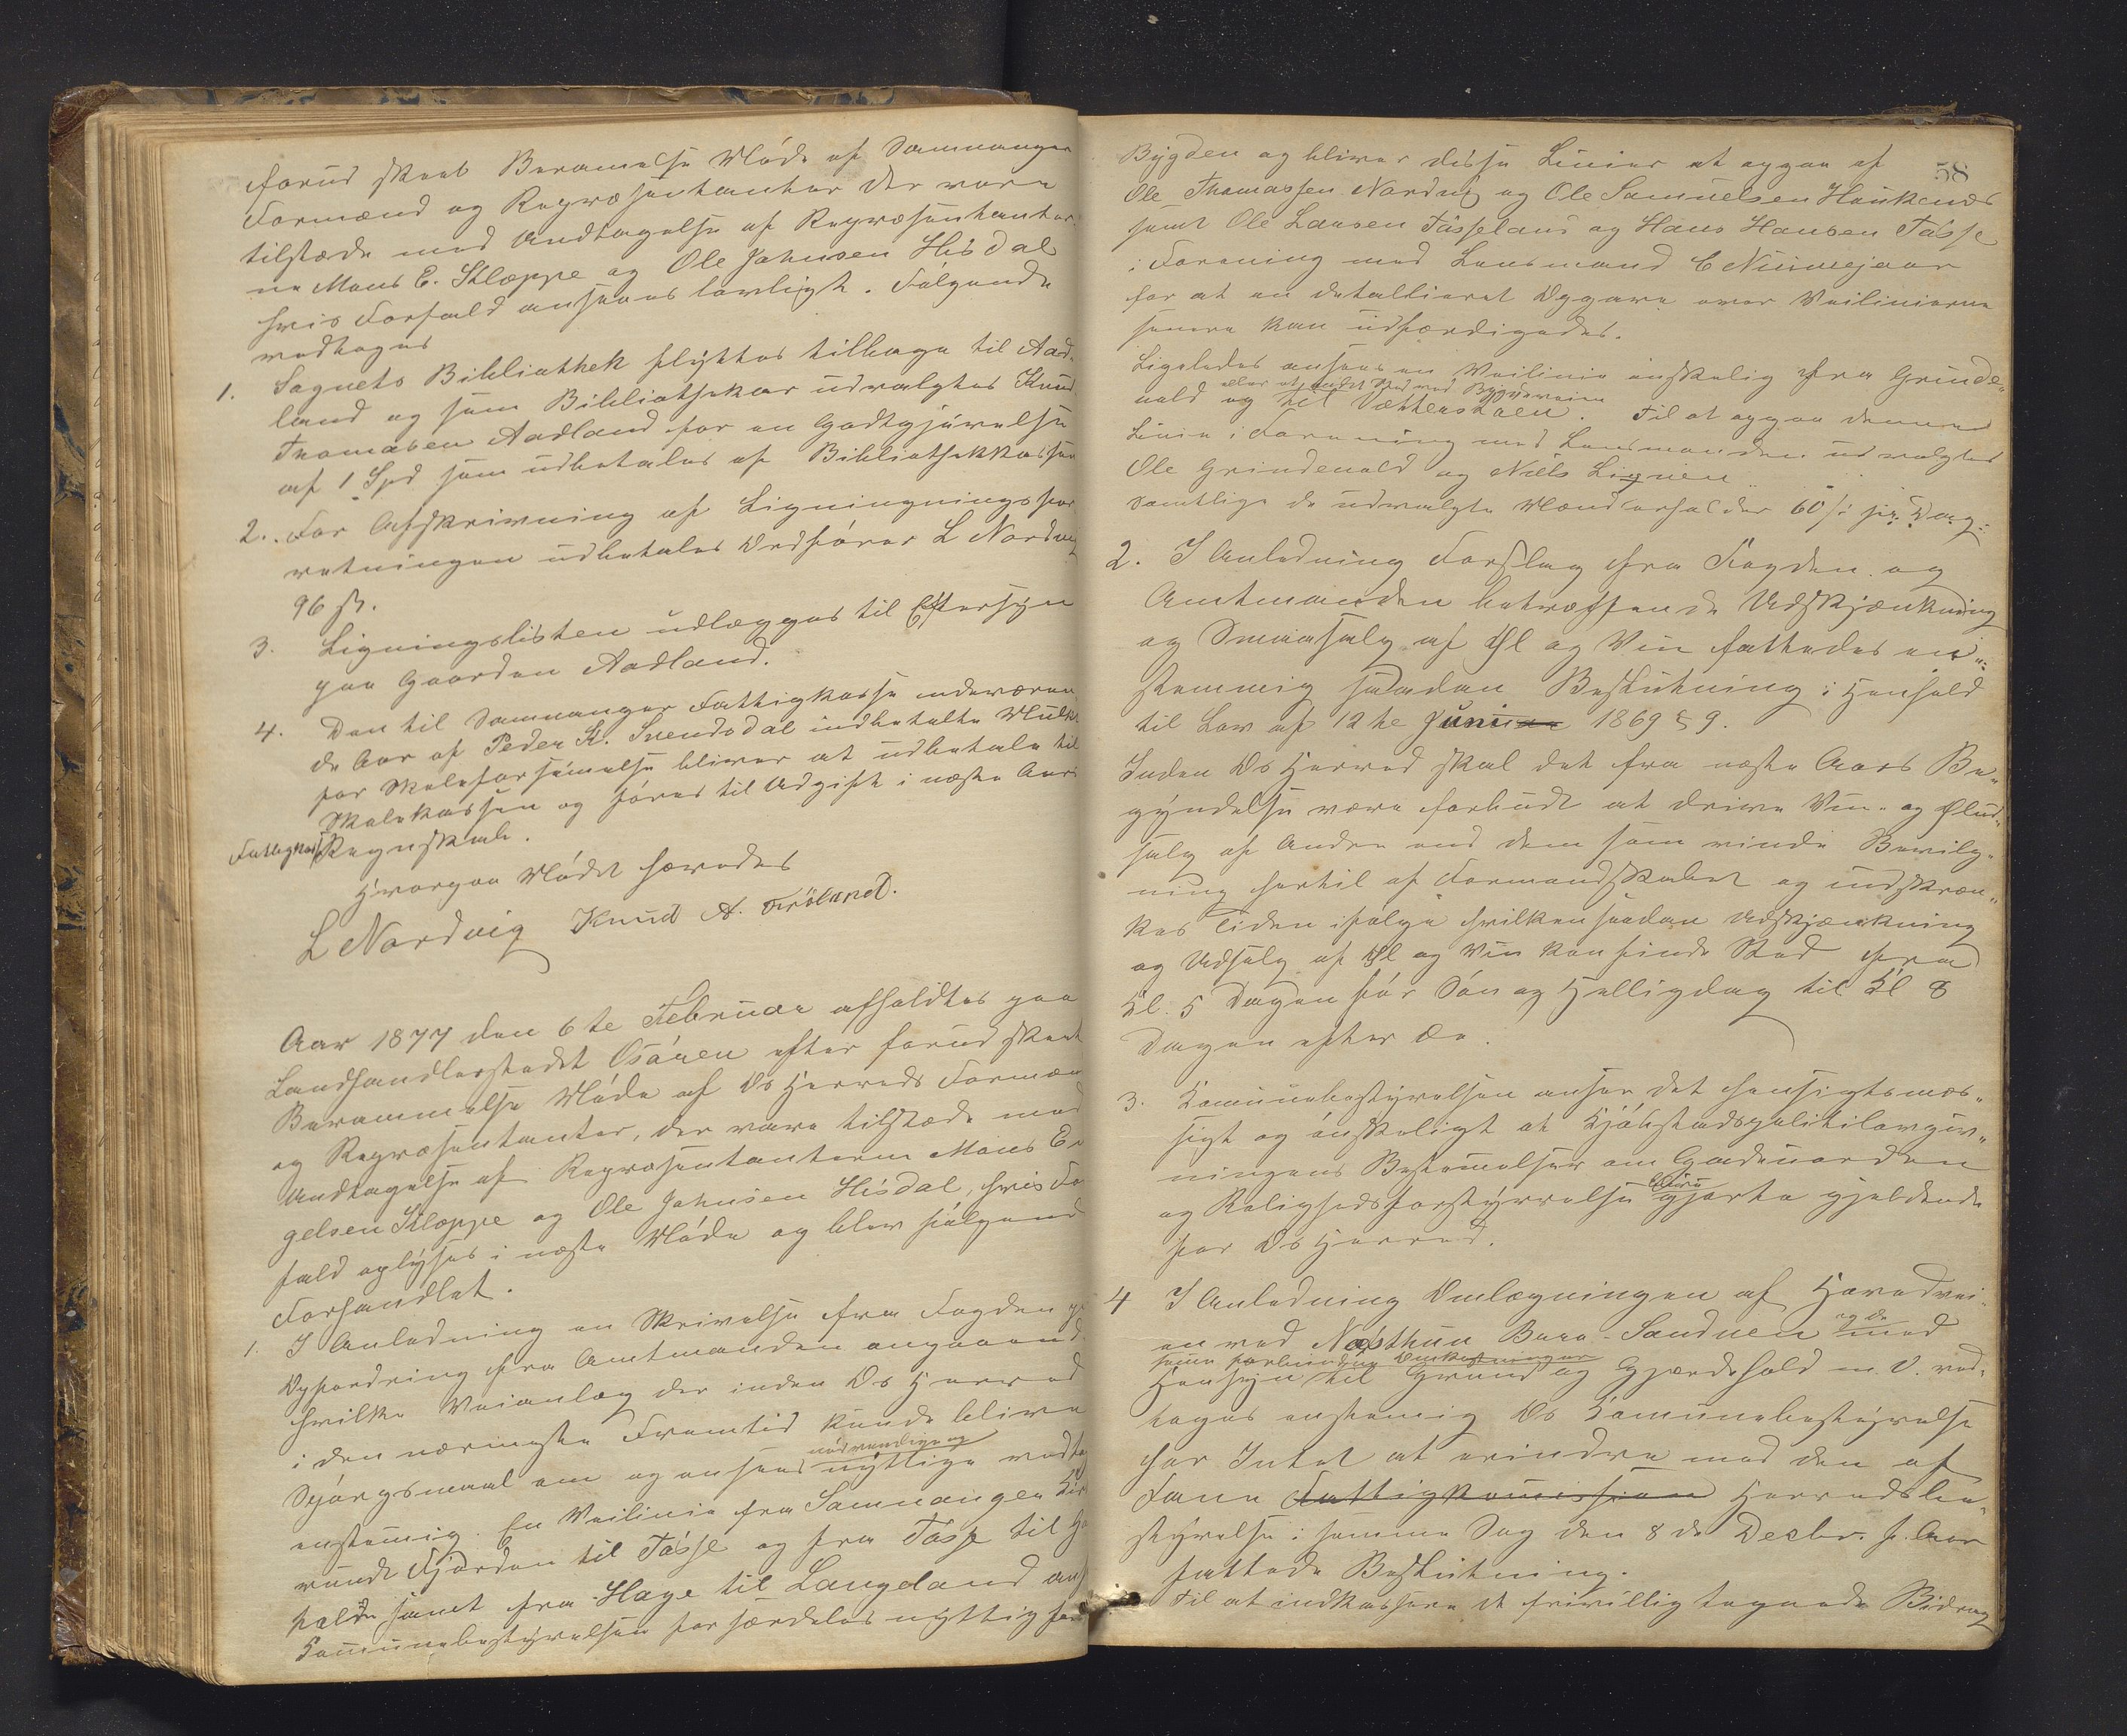 forud skeet Berammelse Møde af Samnanger
Formænd og Repræsentanter der vare
tilstæde med Undtagelse af Repræsentanter
ne Mons E. Kleppe og Ole Johnsen Hisdal
hvis Forfald ansees lovligt. Følgende
vedtoges
1. Sognets Bibliothek flyttes tilbage til Aad-
land og som Bibliothekar udvalgtes Knud
Thomasen Aadland for en Godtgjørelse
af 1 Spd som udbetales af Bibliothekkassen
2. For Afskrivning af Ligningsfor
retningen udbetales Ordfører L Nordvig
96 ß.
3. Ligningslisten udlægges til Eftersyn
paa Gaarden Aadland.
4. Den til Samnanger Fattigkasse indeværen
de Aar af Peder K. Svendsdal indbetalte Mulkt
for Skoleforsømmelse bliver at udbetale til
Skolekassen og føres til Udgift i næste Aars
Fattigkasse Regnskab.
Hvorpaa Mødet hævedes
L Nordvig Knud A. Frøland.
Aar 1877 den 6te Februar afholdtes paa
Landhandlerstedet Osøren efter forud skeet
Berammelse Møde af Os Herreds Formæn
og Repræsentanter, der vare tilstæde med
Undtagelse af Repræsentanterne Mons En
gelsen Kleppe og Ole Johnsen Hisdal, hvis For
fald oplyses i næste Møde og blev følgende
Forhandlet.
1. I Anledning en Skrivelse fra Fogden
Opfordring fra Amtmanden angaaende
hvilke Veianlæg der inden Os Herred
i den nærmeste Fremtid kunde blive
nødvendige og
Spørgsmaal om og ansees nyttige vedtog
enstemig. En Veilinie fra Samnanger Kir
rundt Fjorden til Tøsse og fra Tøsse til
samt fra Hage til Langeland
Kommunebestyrelsen for særdeles nyttig for
58
Bygden og bliver disse Linier at opgaa af
Ole Thomassen Nordvig og Ole Samuelsen Haukenes
samt Ole Larsen Tøsseland og Hans Hansen Tøsse
i Forening med Lensmand C Nummejaar
for at en detalliert Opgave over Veilinierne
senere kan udfærdigedes.
Ligeledes ansees en Veilinie ønskelig fra Grinde-
eller et andet Sted ved Bygdeveien
vold og til Vættenstøen. Til at opgaa denne
Linie i Forening med Lensmanden udvalgtes
Ole Grindevold og Niels Lignen
Samtlige de udvalgte Mænd erholder 60 ß pr: Dag.
2. I Anledning Forslag fra Fogden og
Amtmanden betræffende Udskjænkning
og Smaasalg af Øl og Vin fattedes en-
stemmig saadan Beslutning i Henhold
til Lov af 12te Juni 1869 § 9.
Inden Os Herred skal det fra næste Aars Be-
gyndelse være forbudt at drive Vin- og Ølud-
salg af Andre end dem som vinde Bevilg-
ning hertil af Formandskabet og indskræn-
kes Tiden ifølge hvilken saadan Udskjænkning
og Udsalg af Øl og Vin kan finde Sted fra
Kl. 5 Dagen før Søn og Helligdag til Kl 8
Dagen efter do.
3. Kommunebestyrelsen anser det hensigtsmæs-
sigt og ønskeligt at Kjøbstadspolitilovgiv-
ningens Bestemelser om Gadeuorden
blive
og Rolighedsforstyrrelse gjorte gjeldende
for Os Herred.
4 I Anledning Omlægningen af Hovedvei-
og de
en ved Nøsthun Bure-Sandven med
samme forbundne Omkostninger
Hensyn til Grund og Gjærdehold m. V. ved-
toges enstemig Os Kommunebestyrelse
har Intet at erindre mod den af
Fane Fattigkommission Herredsbe-
styrelse i samme Sag den 8de Decbr. f. Aar
fattede Beslutning.
Til at indkassere de frivillig tegnede Bidrag